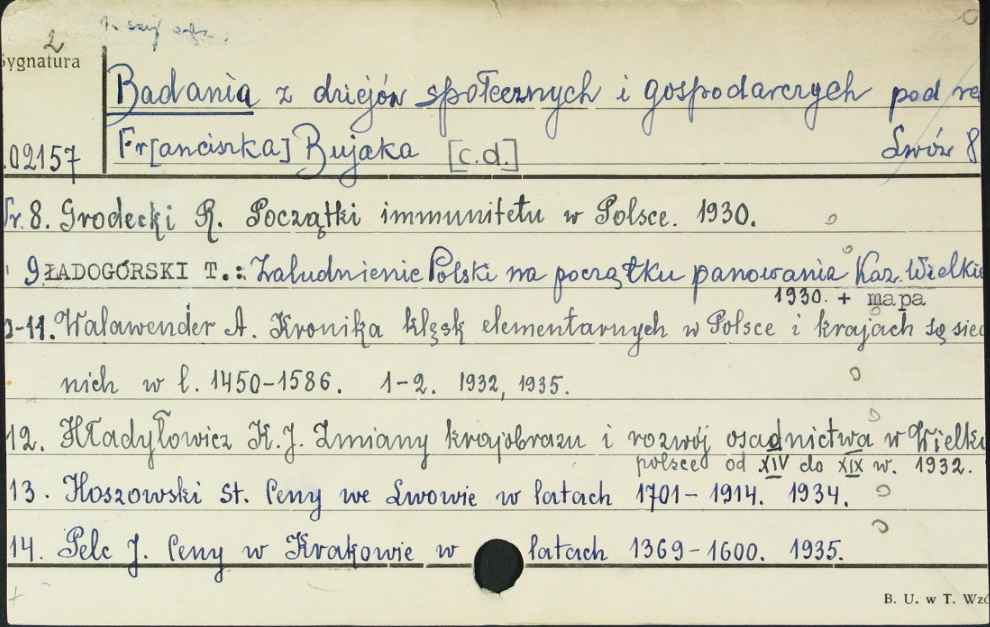 2
Sygnatura
Badania z dziejów społecznych i gospodarczych pod re
02157 Fr[anciszka] Bujaka [c.d.] Lwów 8
Nr. 8. Grodecki R. Początki immunitetu w Polsce. 1930.
9 ŁADOGÓRSKI T.: Zaludnienie Polski na początku panowania Kaz. Wielkie
1930. + mapa
0-11. Walawender A. Kronika klęsk elementarnych w Polsce i krajach są sied
nich w l. 1450-1586. 1-2. 1932, 1935.
12. Hładyłowicz K.J. Zmiany krajobrazu i rozwój osadnictwa w Wielko
polsce od XIV do XIX w. 1932.
13. Hoszowski St. Ceny we Lwowie w latach 1701-1914. 1934.
14. Pelc J. Ceny w Krakowie w latach 1369-1600. 1935.
B. U. w T. Wzó